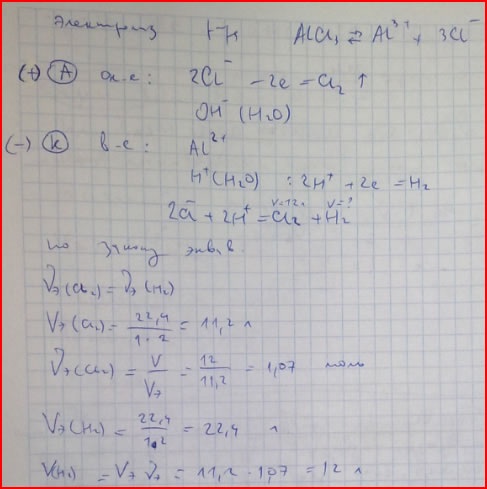 Электролиз р-р AlCl₃ ⇄ Al³⁺ + 3Cl⁻
(+) A ок-е: 2Cl⁻ - 2e = Cl₂ ↑
OH⁻ (H₂O)
(-) K в-е: Al²⁺
H⁺(H₂O) : 2H⁺ + 2e = H₂
V=12л V=?
2Cl⁻ + 2H⁺ = Cl₂ + H₂
по закону экв.
νэ(Cl₂) = νэ(H₂)
Vэ(Cl₂) = 22,4/1·2 = 11,2 л
νэ(Cl₂) = V/Vэ = 12/11,2 = 1,07 моль
Vэ(H₂) = 22,4/1·2 = 22,4 л
V(H₂) = Vэ νэ = 11,2 · 1,07 = 12 л